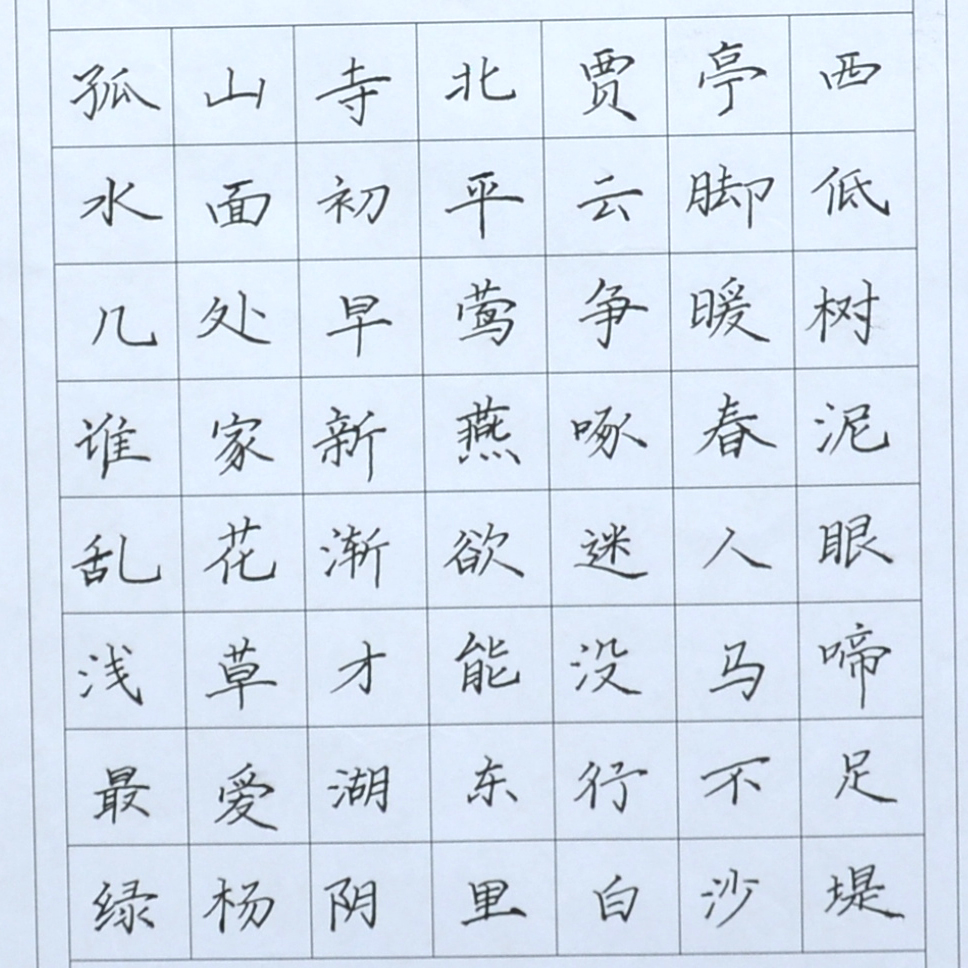 孤山寺北贾亭西
水面初平云脚低
几处早莺争暖树
谁家新燕啄春泥
乱花渐欲迷人眼
浅草才能没马啼
最爱湖东行不足
绿杨阴里白沙堤